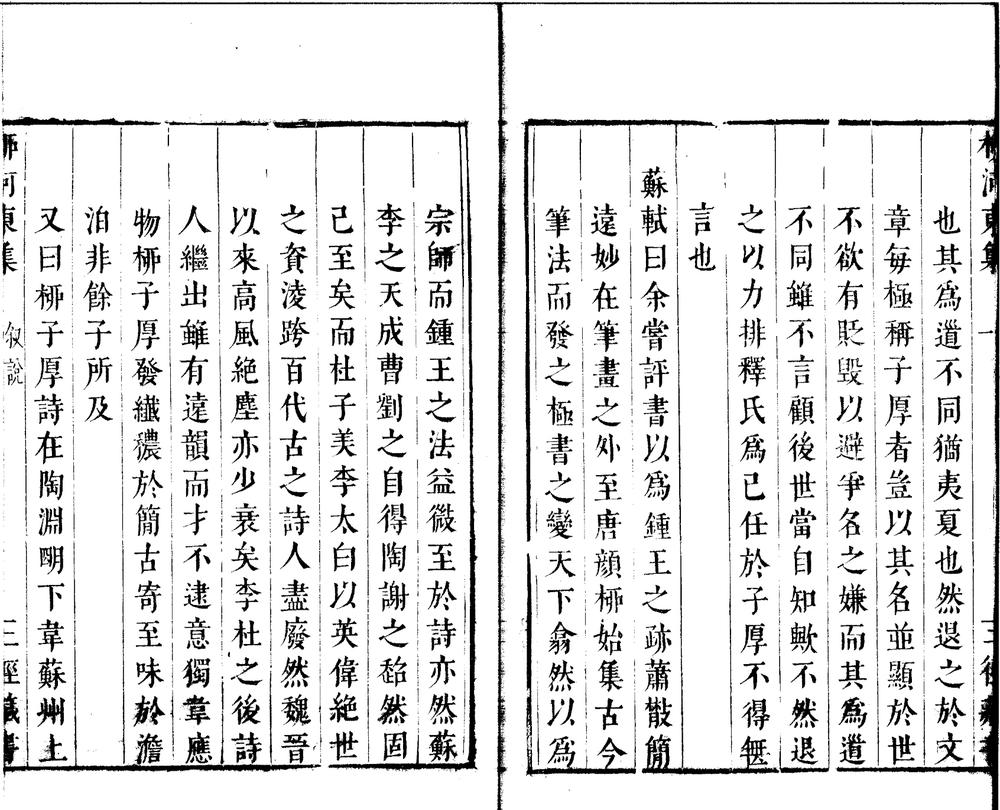 柳河東集 三徑藏書
也其爲道不同猶夷夏也然退之於文
章每極稱子厚者豈以其名並顯於世
不欲有貶毀以避爭名之嫌而其爲道
不同雖不言顧後世當自知歟不然退
之以力排釋氏爲已任於子厚不得無
言也
蘇軾曰余嘗評書以爲鍾王之跡蕭散簡
遠妙在筆畫之外至唐顔栁始集古今
筆法而發之極書之變天下翕然以爲
宗師而鍾王之法益微至於詩亦然蘇
李之天成曹劉之自得陶謝之超然固
已至矣而杜子美李太白以英偉絶世
之資淩跨百代古之詩人盡廢然魏晉
以來高風絶塵亦少衰矣李杜之後詩
人繼出雖有遠韻而才不逮意獨韋應
物栁子厚發纎穠於簡古寄至味於澹
泊非餘子所及
又曰栁子厚詩在陶淵明下韋蘇州上
栁河東集 叙說 三徑藏書